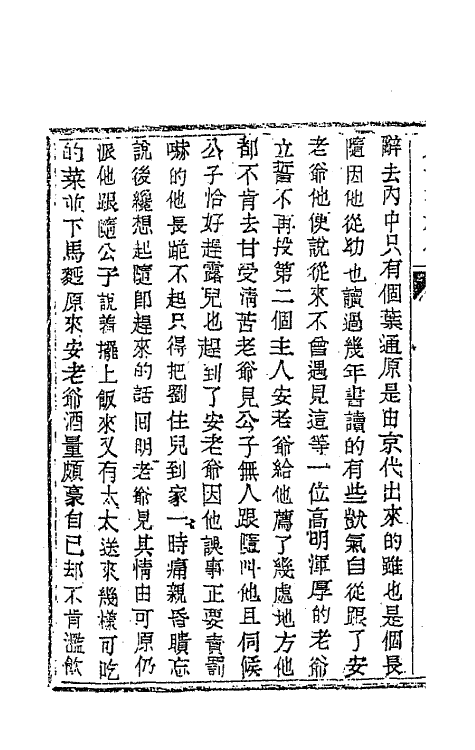 辭去內中只有個葉通原是由京代出來的雖也是個長
隨因他從幼也讀過幾年書讀的有些獃氣自從跟了安
老爺他便說從來不曾遇見這等一位高明渾厚的老爺
立誓不再投第二個主人安老爺給他薦了幾處地方他
都不肯去甘受清苦老爺見公子無人跟隨叫他且伺候
公子恰好趕露兒也趕到了安老爺因他誤事正要責罰
嚇的他長跪不起只得把劉住兒到家一時痛親昏瞶忘
說後纔想起隨卽趕來的話回明老爺見其情由可原仍
派他跟隨公子說着擺上飯來又有太太送來幾樣可吃
的菜並下馬麵原來安老爺酒量頗豪自已却不肯濫飲